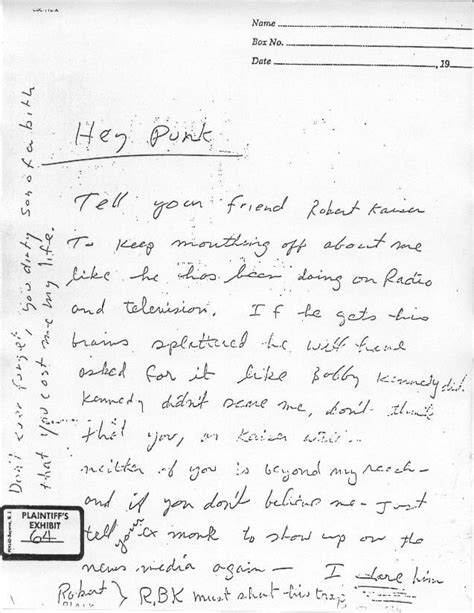 Name
Box No.
Date , 19
Hey Punk
Tell your friend Robert Kaiser
To keep mouthing off about me
like he has been doing on Radio
and television. If he gets his
brains splattered he will have
asked for it like Bobby Kennedy did.
Kennedy didn't scare me, don't think
that you, or Kaiser will –
neither of you is beyond my reach –
and if you don't believe me – just
tell your ex monk to show up on the
news media again – I dare him
Robert } RBK must shut his trap
Don't ever forget, you dirty son of a bith
that you cost me my life.
PLAINTIFF'S
EXHIBIT
64